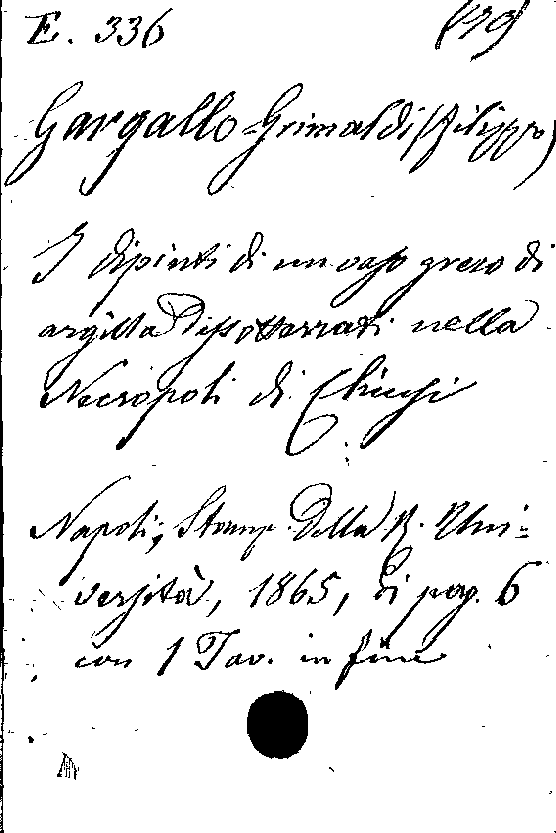 E. 336 (19)
Gargallo-Grimaldi (Filippo)
I dipinti di un vaso greco di
argilla dissotterrati nella
Necropoli di Chiugi
Napoli, Stamp. della R. Uni=
versità, 1865, di pag. 6
con 1 Tav. in fine